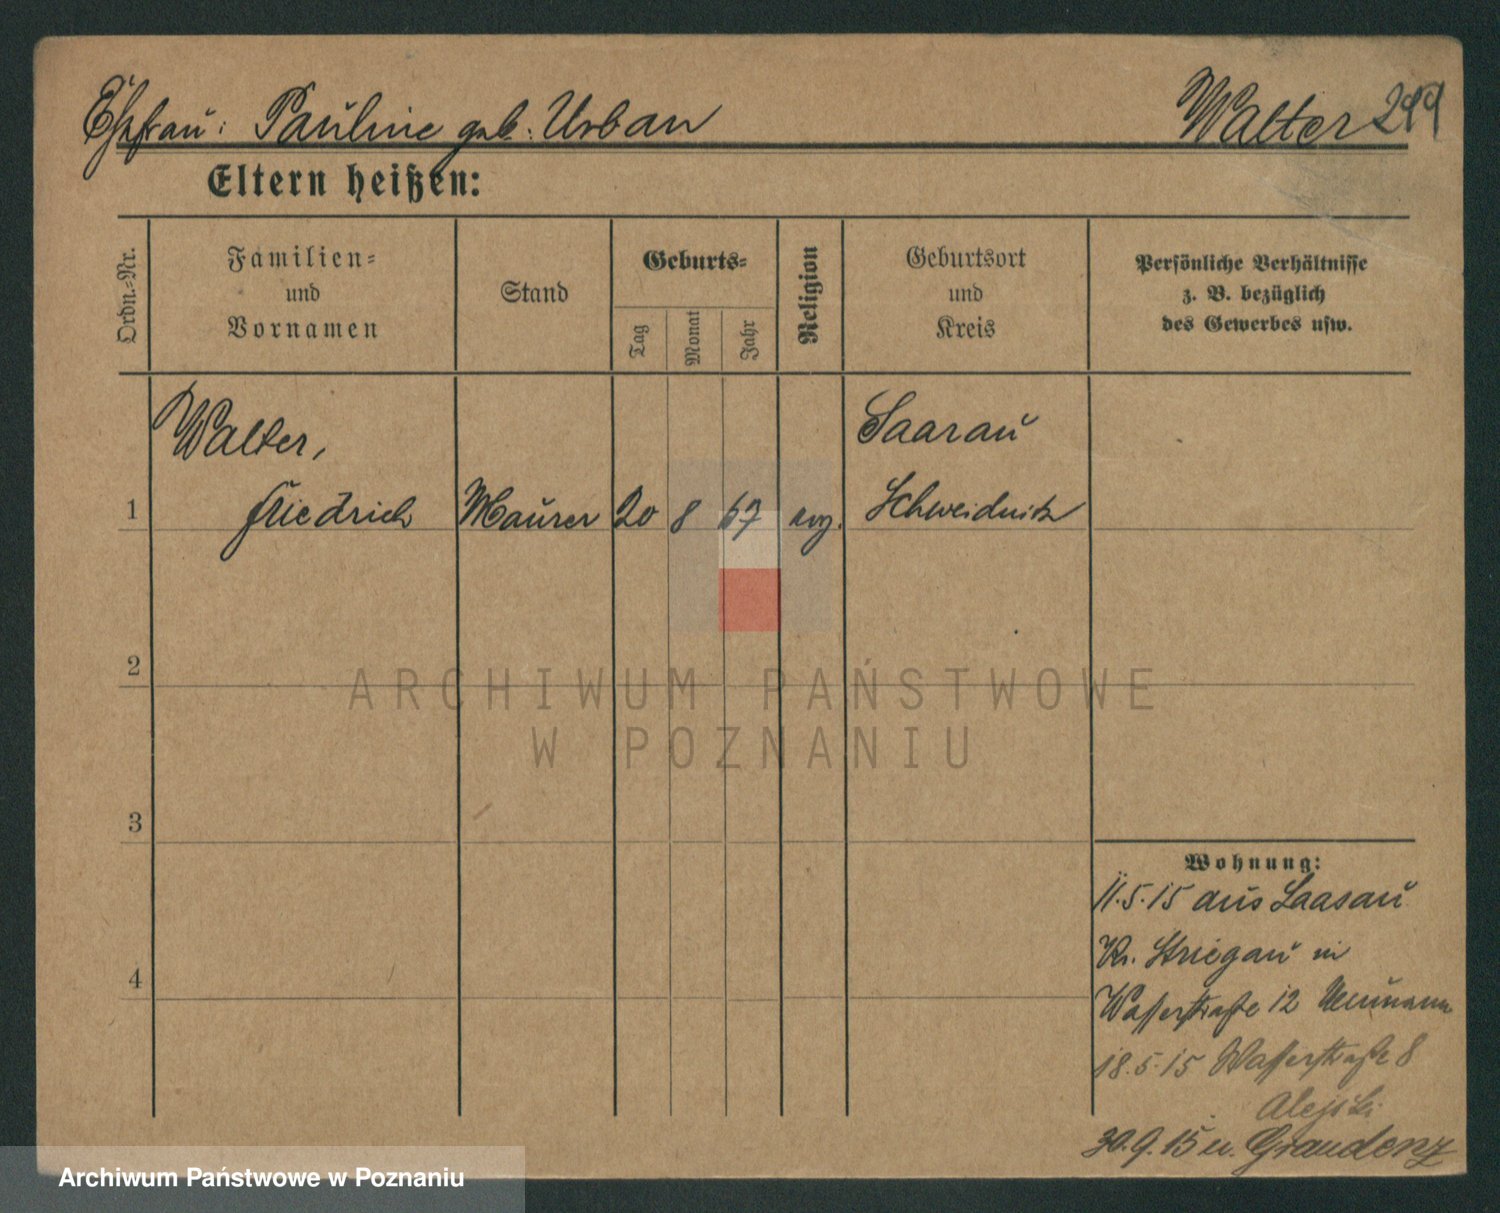 Ehefrau: Pauline geb. Urban Walter 299
Eltern heißen:
Ordn.-Nr.
Familien-
und
Vornamen
Stand
Geburts-
Tag
Monat
Jahr
Religion
Geburtsort
und
Kreis
Persönliche Verhältnisse
z. B. bezüglich
des Gewerbes usw.
Walter, Saarau
1 Friedrich Maurer 20 8 67 evg. Schweidnitz
2
ARCHIWUM PAŃSTWOWE
W POZNANIU
3
Wohnung:
11.5.15 aus Laasau
Kr. Striegau in
4
Wasserstraße 12 Neumann
18.5.15 Wasserstraße 8
Alejski
30.9.15 n. Graudenz
Archiwum Państwowe w Poznaniu